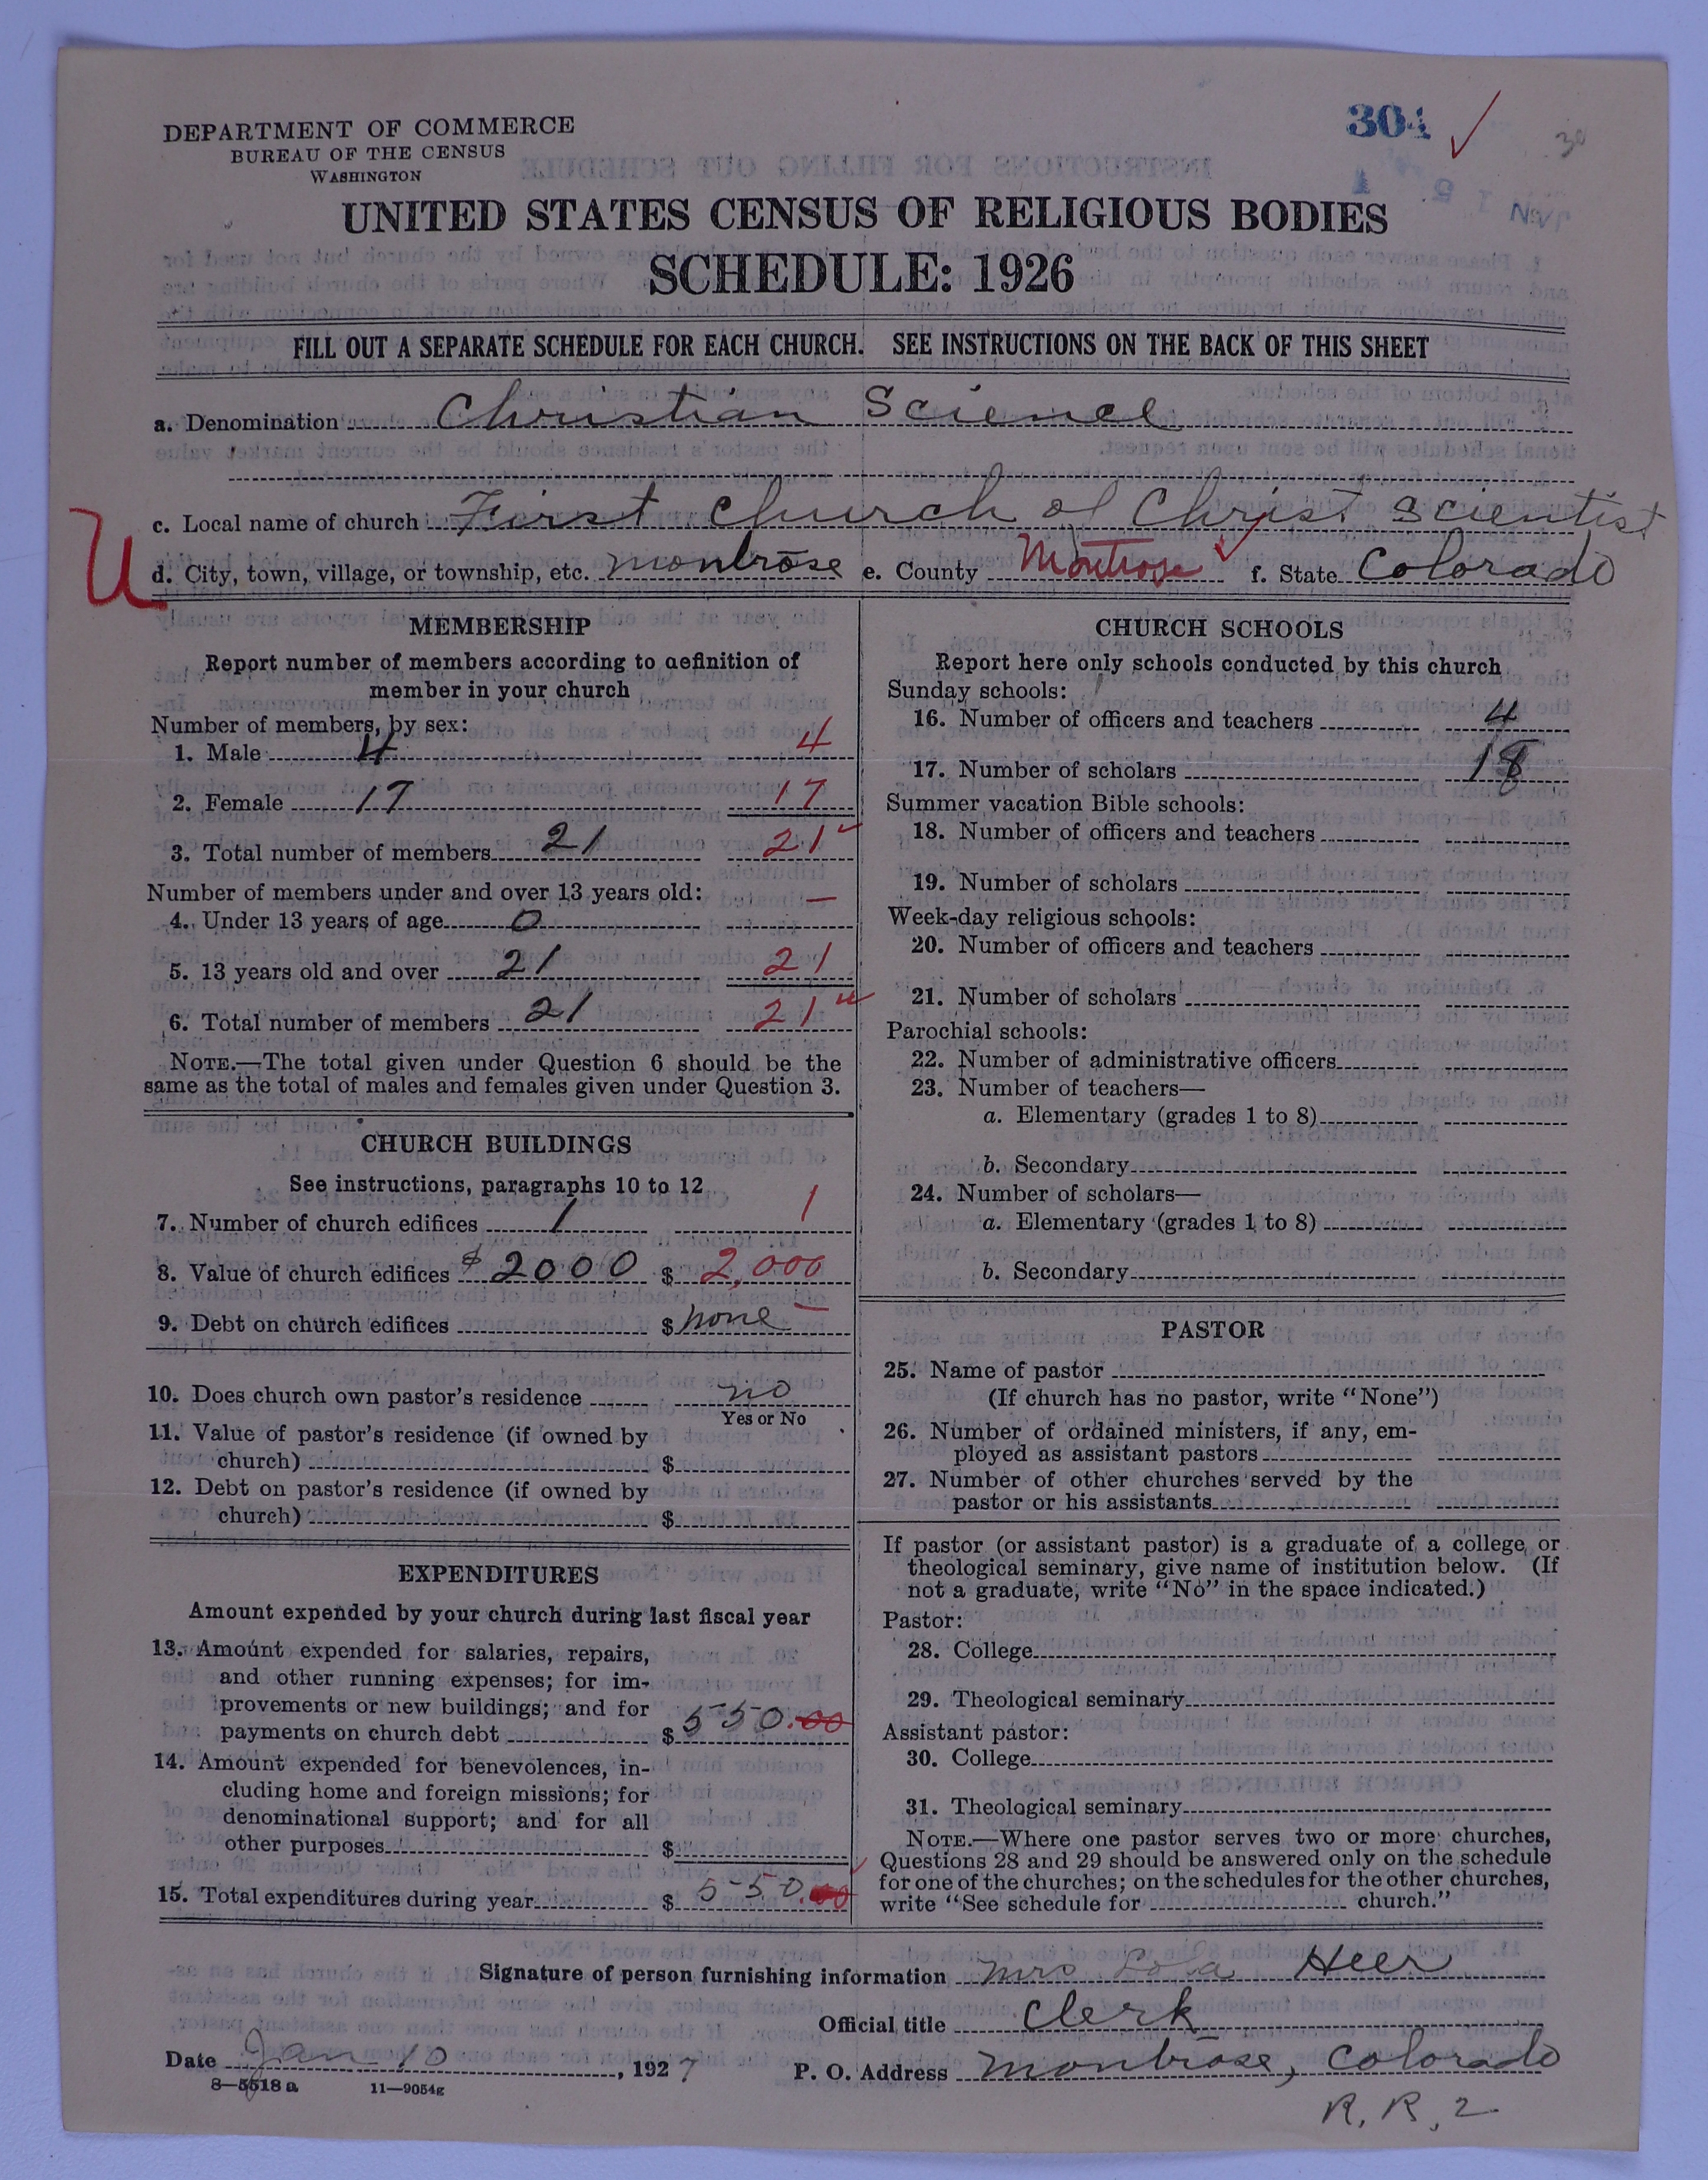 304 ✓ 30
DEPARTMENT OF COMMERCE
BUREAU OF THE CENSUS
WASHINGTON
UNITED STATES CENSUS OF RELIGIOUS BODIES
SCHEDULE: 1926
FILL OUT A SEPARATE SCHEDULE FOR EACH CHURCH. SEE INSTRUCTIONS ON THE BACK OF THIS SHEET
a. Denomination Christian Science
c. Local name of church First Church of Christ Scientist
U
d. City, town, village, or township, etc. Montrose e. County Montrose ✓ f. State Colorado
MEMBERSHIP
Report number of members according to definition of
member in your church
Number of members, by sex:
1. Male 4 4
2. Female 17 17
3. Total number of members 21 21 ✓
Number of members under and over 13 years old:
4. Under 13 years of age 0 —
5. 13 years old and over 21 21
6. Total number of members 21 21 ✓
NOTE.—The total given under Question 6 should be the
same as the total of males and females given under Question 3.
CHURCH BUILDINGS
See instructions, paragraphs 10 to 12
7. Number of church edifices 1 1
8. Value of church edifices $2000 $ 2,000
9. Debt on church edifices $ none —
10. Does church own pastor's residence no
Yes or No
11. Value of pastor's residence (if owned by
church) $
12. Debt on pastor's residence (if owned by
church) $
EXPENDITURES
Amount expended by your church during last fiscal year
13. Amount expended for salaries, repairs,
and other running expenses; for im-
provements or new buildings; and for
payments on church debt $ 550.00
14. Amount expended for benevolences, in-
cluding home and foreign missions; for
denominational support; and for all
other purposes $
15. Total expenditures during year $ 550.00
CHURCH SCHOOLS
Report here only schools conducted by this church
Sunday schools:
16. Number of officers and teachers 4
17. Number of scholars 18
Summer vacation Bible schools:
18. Number of officers and teachers
19. Number of scholars
Week-day religious schools:
20. Number of officers and teachers
21. Number of scholars
Parochial schools:
22. Number of administrative officers
23. Number of teachers—
a. Elementary (grades 1 to 8)
b. Secondary
24. Number of scholars—
a. Elementary (grades 1 to 8)
b. Secondary
PASTOR
25. Name of pastor
(If church has no pastor, write "None")
26. Number of ordained ministers, if any, em-
ployed as assistant pastors
27. Number of other churches served by the
pastor or his assistants
If pastor (or assistant pastor) is a graduate of a college or
theological seminary, give name of institution below. (If
not a graduate, write "No" in the space indicated.)
Pastor:
28. College
29. Theological seminary
Assistant pastor:
30. College
31. Theological seminary
NOTE.—Where one pastor serves two or more churches,
Questions 28 and 29 should be answered only on the schedule
for one of the churches; on the schedules for the other churches,
write "See schedule for church."
Signature of person furnishing information Mrs Lola Heer
Official title Clerk
Date Jan 10, 1927 P. O. Address Montrose, Colorado
8—5518 a 11—9054g
R. R. 2